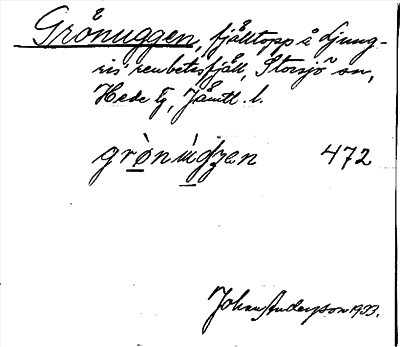 Grånuggen, fjälltopp å Ljung-
ris renbetesfjäll, Storsjö sn,
Hede tg, Jämtl. l.
grònúgg̣en 472
Johan Anderson 1933.